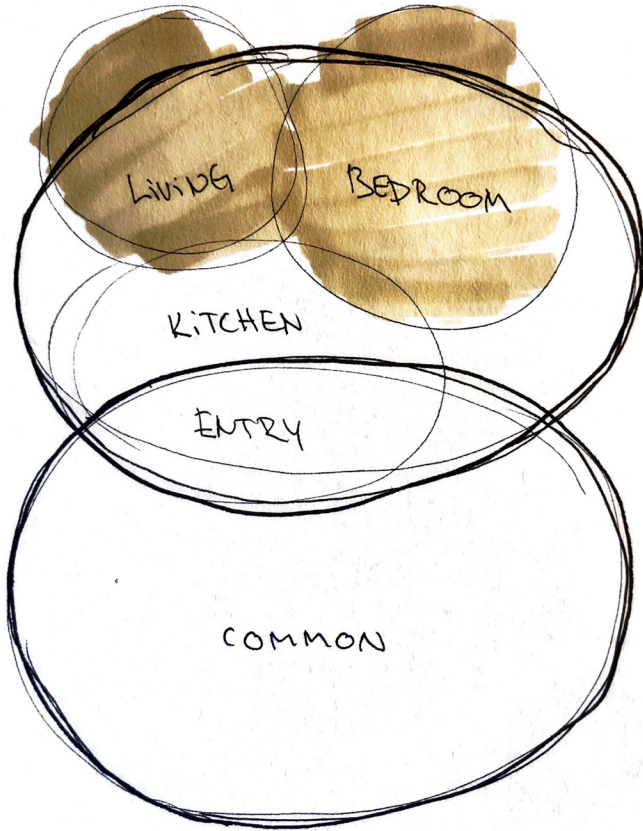 LiViNG
BEDROOM
KiTCHEN
ENTRY
COMMON